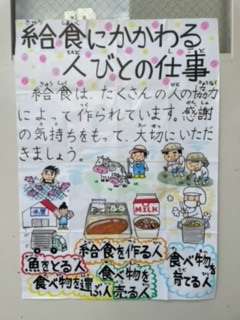 給食にかかわる
人びとの仕事
給食は、たくさんの人の協力
によって作られています。感謝
の気持ちをもって、大切にいただ
きましょう。
MILK
給食を作る人
魚をとる人
食べ物を
売る人
食べ物を
育てる人
食べ物を運ぶ人